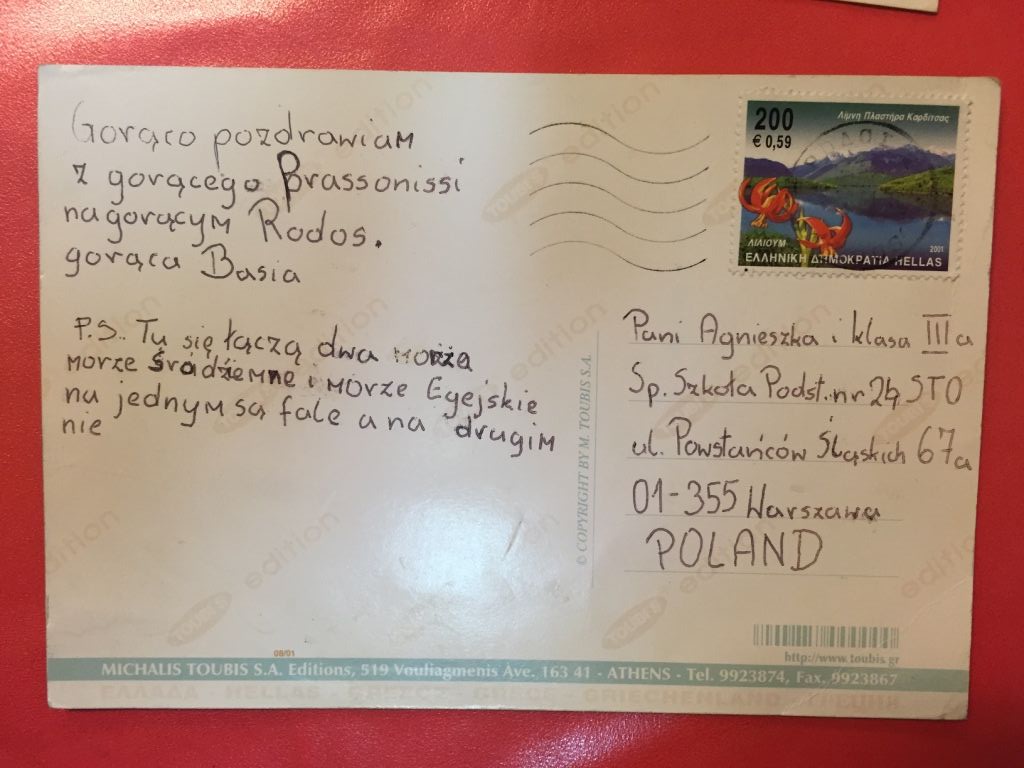 Gorąco pozdrawiam
z gorącego Prassonissi
na gorącym Rodos.
gorąca Basia
P.S. Tu się łączą dwa morza
morze śródziemne i morze Egejskie
na jednym są fale a na drugim
nie
200
€ 0,59
Λίμνη Πλαστήρα Καρδίτσας
ΛΙΛΙΟΥΜ
2001
ΕΛΛΗΝΙΚΗ ΔΗΜΟΚΡΑΤΙΑ HELLAS
Pani Agnieszka i klasa III a
Sp. Szkoła Podst. nr 24 STO
ul. Powstańców Śląskich 67a
01-355 Warszawa
POLAND
© COPYRIGHT BY M. TOUBIS S.A.
http://www.toubis.gr
08/01
MICHALIS TOUBIS S.A. Editions, 519 Vouliagmenis Ave. 163 41 - ATHENS - Tel. 9923874, Fax. 9923867
ΕΛΛΑΔΑ - HELLAS - GREECE - GRECE - GRIECHENLAND - ГРЕЦИЯ
TOUBIS S edition